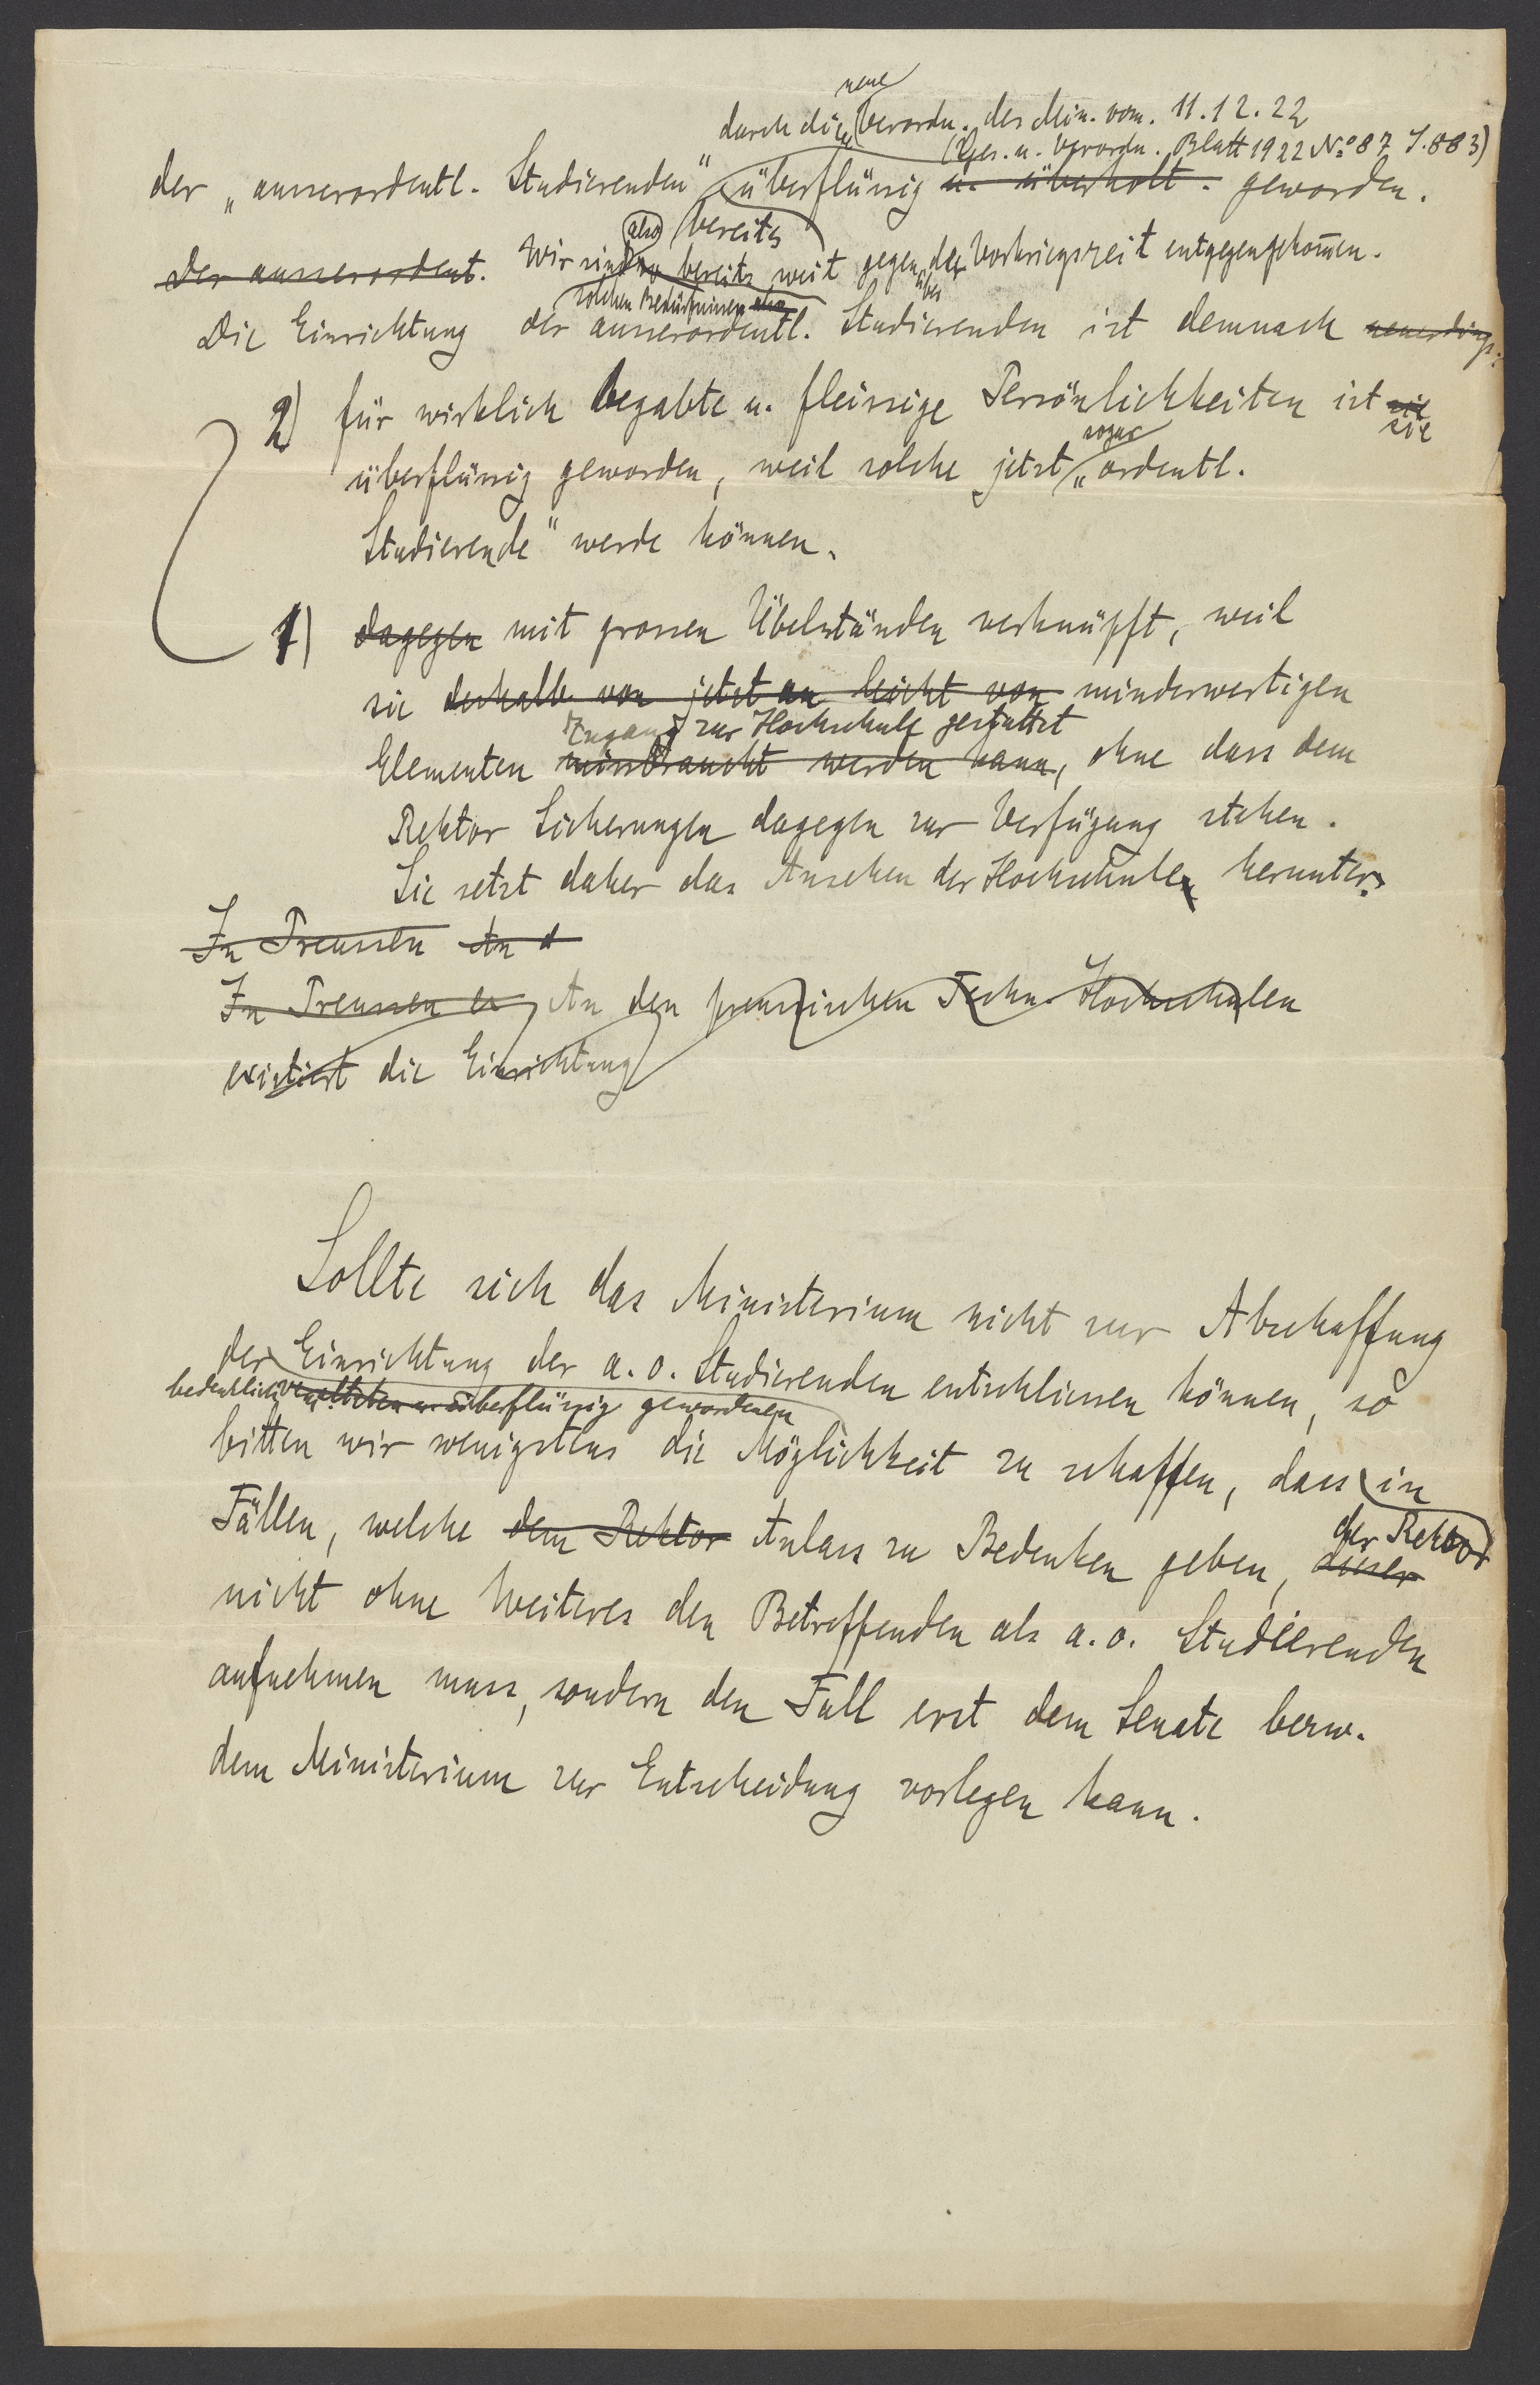 neue
durch die Verordn. des Min. vom. 11.12.22
(Ges. u. Verordn. Blatt 1922 No 87 S. 883)
der „ausserordentl. Studierenden“ überflüssig u. überholt. geworden.
also bereits
der ausserordent. Wir sind bereits weit gegenüber der Vorkriegszeit entgegengekom̄en.
solchen Bedürfnissen also
Die Einrichtung der ausserordentl. Studierenden ist demnach neuerdings
2) für wirklich begabte u. fleissige Persönlichkeiten ist sie
sie
sogar
überflüssig geworden, weil solche jetzt „ordentl.
Studierende“ werde können.
1) dagegen mit grossen Übelständen verknüpft, weil
sie deshalb von jetzt an leicht von minderwertigen
Zugang zur Hochschule gestattet
Elementen missbraucht werden kann, ohne dass dem
Rektor Sicherungen dagegen zur Verfügung stehen.
Sie setzt daher das Ansehen der Hochschule herunter.
In Preussen An d
In Preussen er An den preussischen Techn. Hochschulen
existiert die Einrichtung
Sollte sich das Ministerium nicht zur Abschaffung
der Einrichtung der a.o. Studierenden entschliessen können, so
bedenklich veralteten u. überflüssig gewordenen
bitten wir wenigstens die Möglichkeit zu schaffen, dass in
der Rektor
Fällen, welche dem Rektor Anlass zu Bedenken geben, dieser
nicht ohne Weiteres den Betreffenden als a.o. Studierenden
aufnehmen muss, sondern den Fall erst dem Senate bezw.
dem Ministerium zur Entscheidung vorlegen kann.